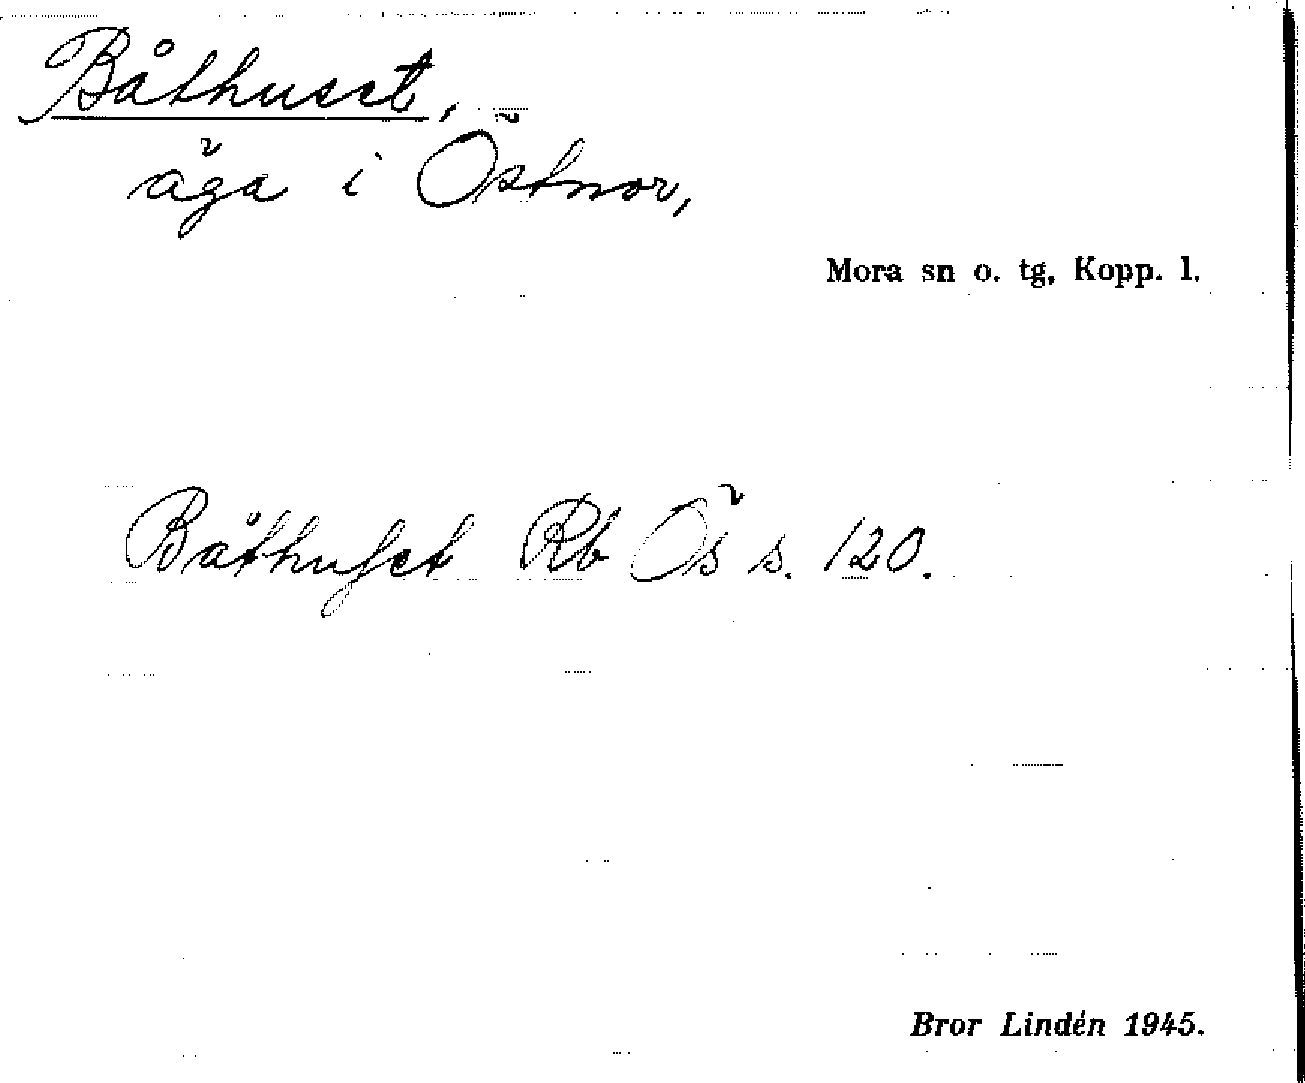 Båthuset,
äga i Östnor,
Mora sn o. tg, Kopp. l.
Båthuſet Rb Ös s. 120.
Bror Lindén 1945.